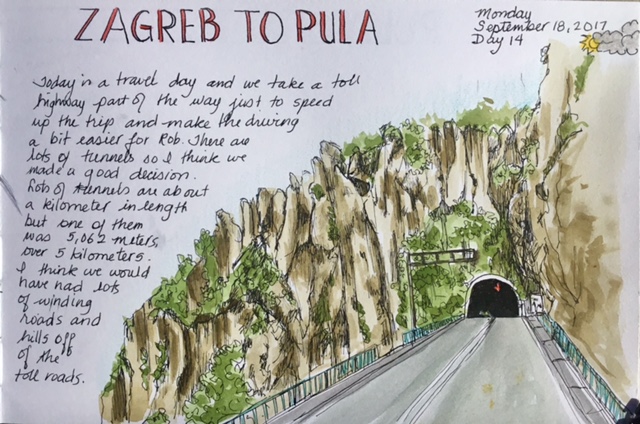 ZAGREB TO PULA
Monday
September 18, 2017
Day 14
Today is a travel day and we take a toll
highway part of the way just to speed
up the trip and make the driving
a bit easier for Rob. There are
lots of tunnels so I think we
made a good decision.
Lots of tunnels are about
a kilometer in length
but one of them
was 5,062 meters,
over 5 kilometers.
I think we would
have had lots
of winding
roads and
hills off
of the
toll roads.